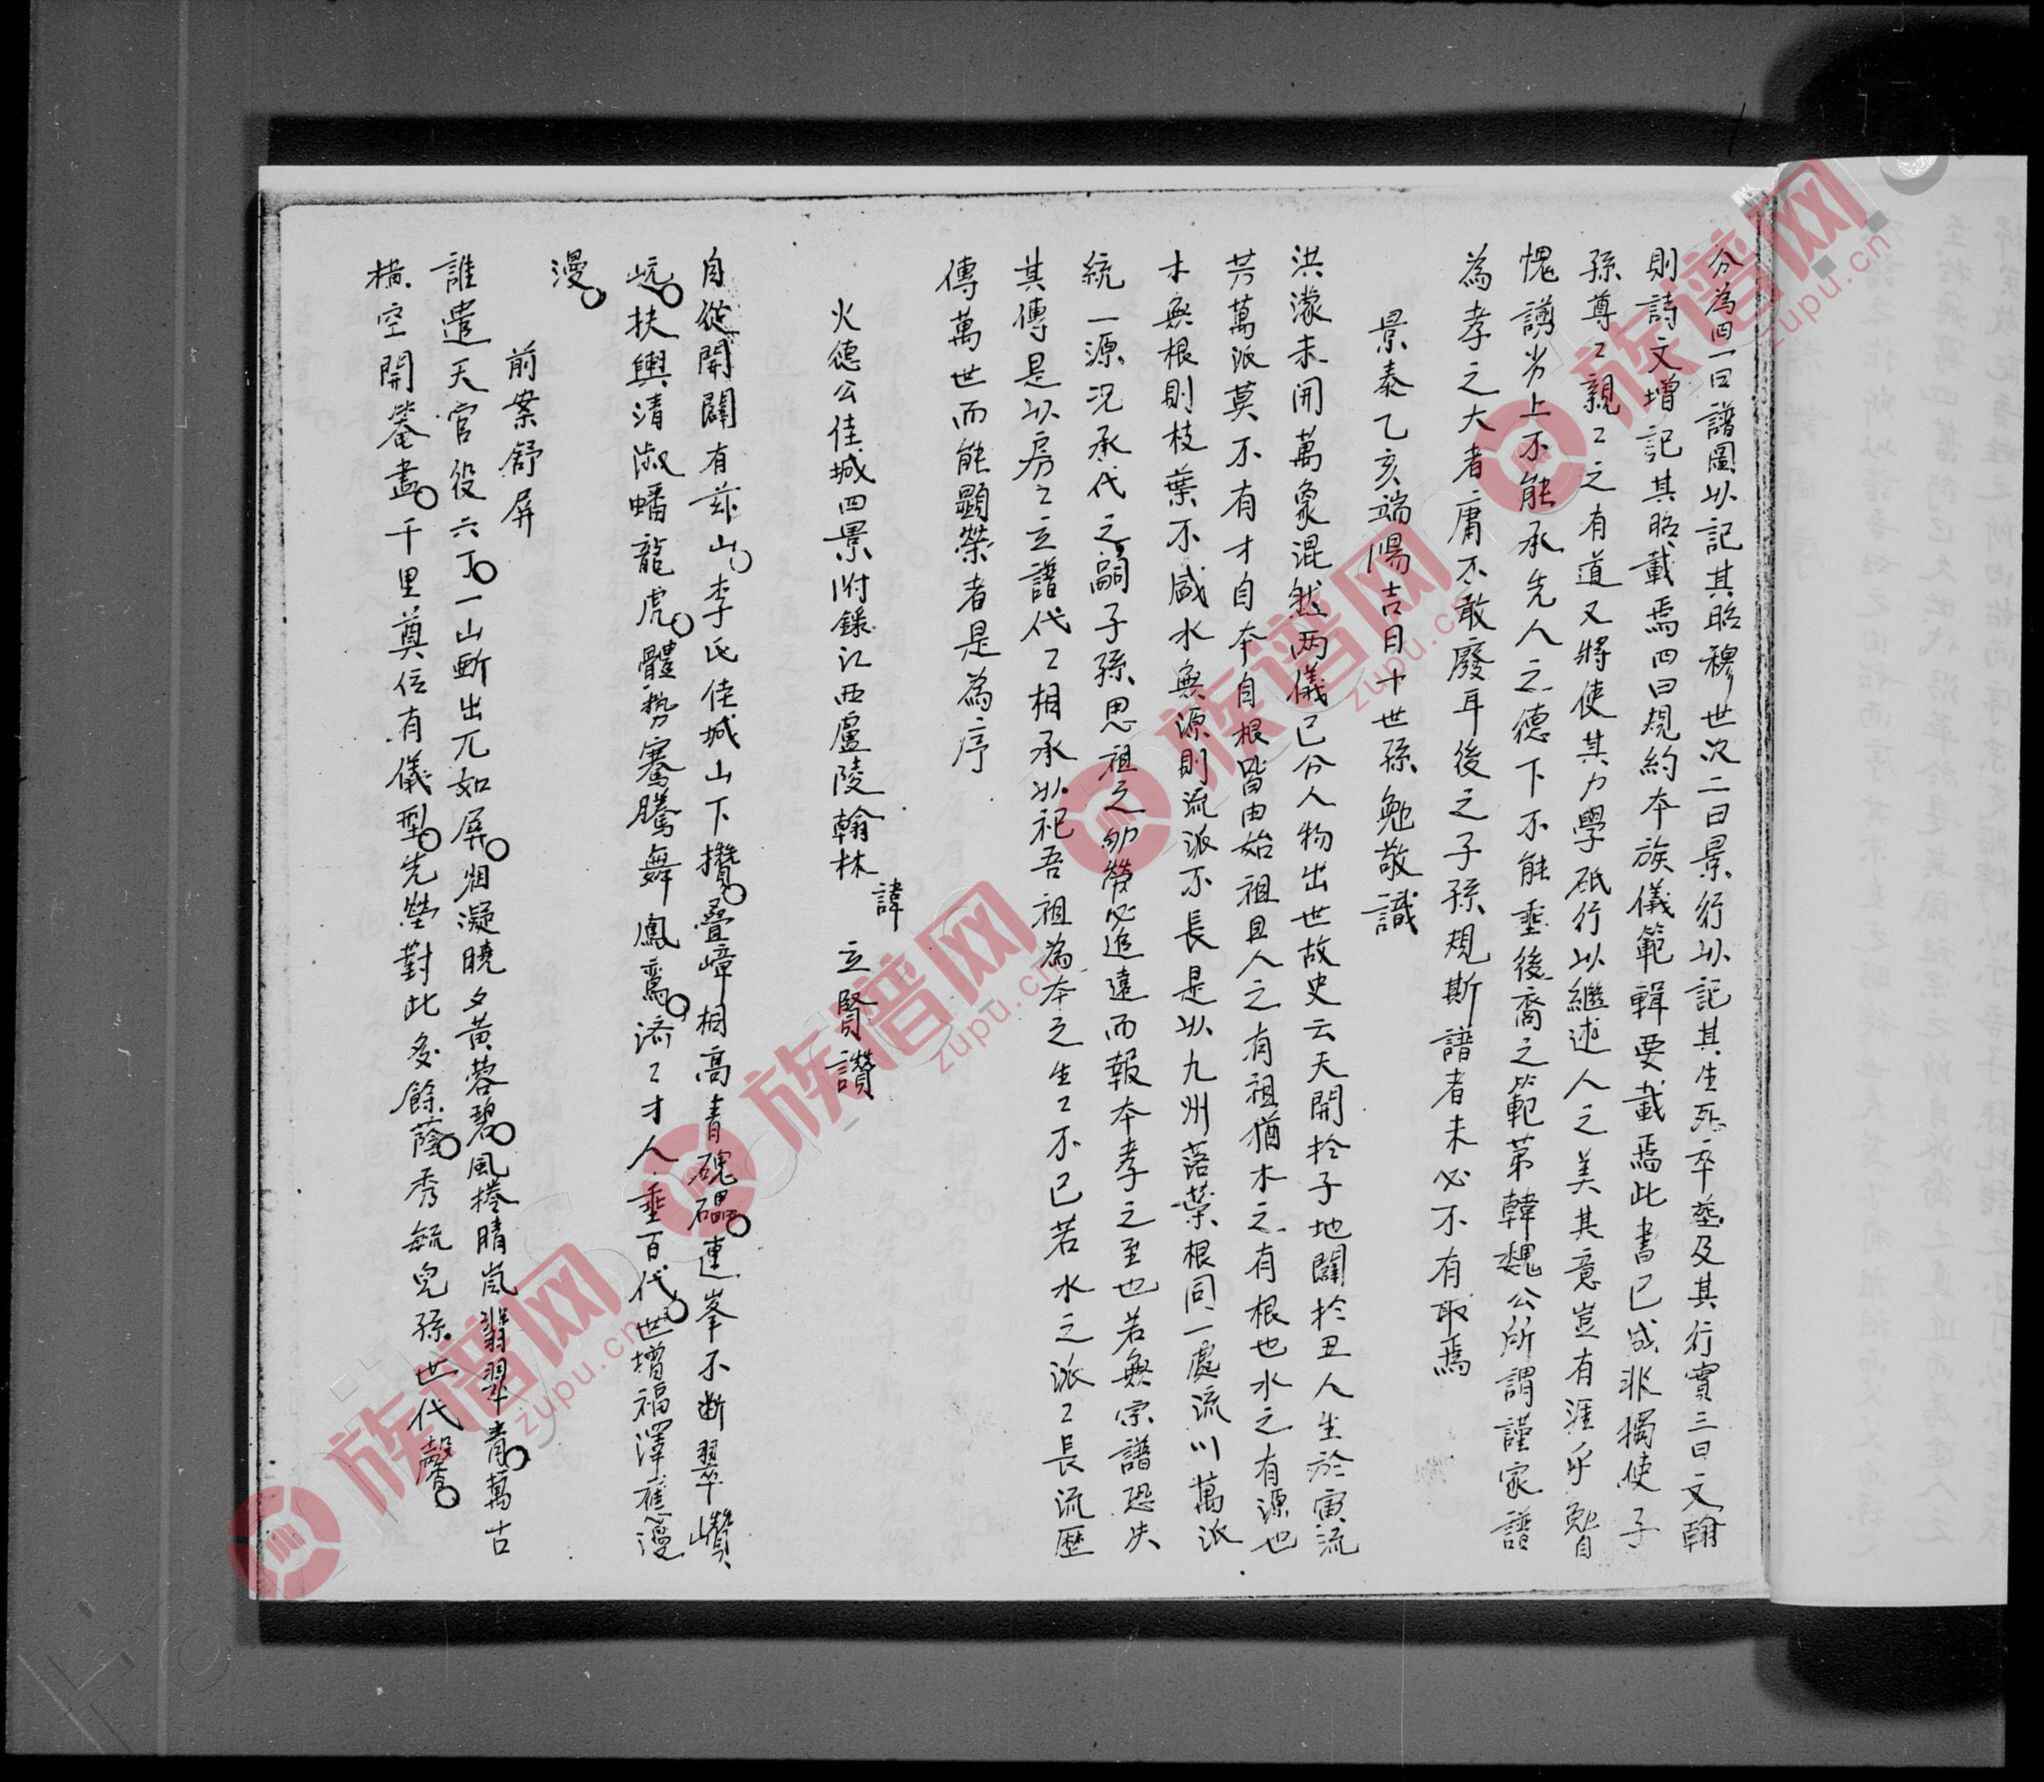 分為四一曰譜圖以記其昭穆世次二曰景行以記其生死卒塟及其行實三曰文翰
則詩文增記其昭載焉四曰規約本族儀範輯要載焉此書已成非獨使子
孫尊〻親〻之有道又將使其力學砥行以繼述人之美其意豈有涯乎勉自
愧謭劣上不能承先人之德下不能垂後裔之範第韓魏公所謂謹家譜
為孝之大者庸不敢廢耳後之子孫規斯譜者未必不有取焉
景泰乙亥端陽吉日十世孫勉敬識
洪濛未開萬象混然两儀已分人物出世故史云天開於子地闢於丑人生於寅流
芳萬派莫不有才自本自根皆由始祖且人之有祖猶木之有根也水之有源也
木無根則枝葉不盛水無源則流派不長是以九州落葉根同一處流川萬派
統一源况承代之嗣子孫思祖之劬勞必追遠而報本孝之至也若無宗譜恐失
其傳是以房〻立譜代〻相承以祀吾祖為本之生〻不已若水之派〻長流歷
傳萬世而能顯榮者是為序
火德公佳城四景附錄江西廬陵翰林 諱 立賢讚
自從開闢有茲山李氏佳城山下攢疊嶂相高青磈磊連峯不断翠巑
岏扶輿清淑蟠龍虎體勢騫騰舞鳳鸞济〻才人垂百代世增福澤應漫
漫
前案舒屏
誰遣天官役六丁一山斬出兀如屏烟凝曉夕黃蓉碧風捲晴嵐翡翠青萬古
橫空開罨畫千里奠位有儀型先塋對此多餘蔭秀毓兒孫世代馨
族谱网
zupu.cn
族谱网
zupu.cn
族谱网
zupu.cn
族谱网
zupu.cn
族谱网
zupu.cn